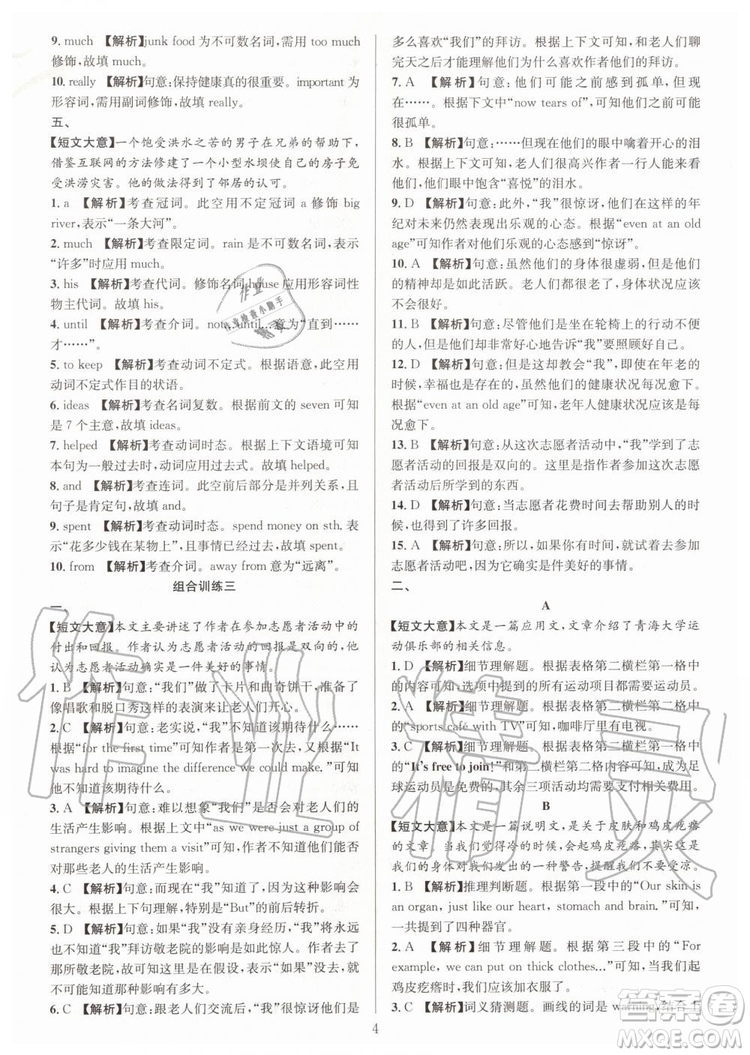 9. much 【解析】junk food 为不可数名词,需用 too much
修饰,故填 much。
10. really 【解析】句意:保持健康真的很重要。important 为
形容词,需用副词修饰,故填 really。
五、
【短文大意】一个饱受洪水之苦的男子在兄弟的帮助下,
借鉴互联网的方法修建了一个小型水坝使自己的房子免
受洪涝灾害。他的行为得到了邻居的认可。
1. a 【解析】考查冠词。此空用不定冠词 a 修饰 big
river,表示“一条大河”。
2. much 【解析】考查限定词。rain 是不可数名词,表示
“许多”时应用 much。
3. his 【解析】考查代词。修饰名词 house 应用形容词性
物主代词,故填 his。
4. until 【解析】考查介词。not...until...意为“直到……
才……”。
5. to keep 【解析】考查动词不定式。根据语意,此空用
动词不定式作目的状语。
6. ideas 【解析】考查名词复数。根据前文的 seven 可知
是 7 个主意,故填 ideas。
7. helped 【解析】考查动词时态。根据上下文语境可知
本句为一般过去时,故填 helped。
8. and 【解析】考查连词。根据句意可知前后表并列,且
句子是肯定句,故填 and。
9. spent 【解析】考查动词时态。spend money on sth. 表
示“花多少钱在某物上”,且事情发生在过去,故填 spent。
10. from 【解析】考查介词。away from 意为“远离”。
组合训练三
一、
【短文大意】本文主要讲述了作者在参加志愿者活动中的
付出和回报。作者认为志愿者活动的回报是双向的,我
们应该意识到志愿者活动确实是一件美好的事情。
1. B 【解析】句意:“我们”带了卡片和曲奇饼干,并准备
像唱歌和脱口秀之类的表演来让老人们享受。
2. C 【解析】句意:老实说,“我”不知道该期待什么……
根据“for the first time”可知是第一次去,又从“It
was hard to imagine the difference we could make.”可知,
不知道该期待什么。
3. A 【解析】句意:难以想象“我们”是否会对老人们的
生活产生影响。根据下文中的“as we were just a group of
strangers giving them a visit”可知,作者不知道“我
们”会给那里的老人的生活产生什么影响。
4. C 【解析】句意:而现在“我”知道了,“我”已经亲身经
历了。根据上下句理解,此处是对上文“我”以前不
知道的转折,故选“But”的前后转折。
5. D 【解析】句意:如果“我”没有亲身经历,“我”将永远
也不可能知道“我”拜访敬老院是如此惊人。作者在去
了那所敬老院之后,觉得结果是令人惊讶的。
6. C 【解析】句意:跟老人们交流后,“我”惊讶于他们有
多么喜欢“我们”的拜访。根据上下文可知,和老人们聊
完天之后才能理解他们为什么喜欢作者他们的拜访。
7. A 【解析】句意:他们可能之前感到孤单,但现
在……根据下文中的“now tears of”可知,他们之前可能
很孤独。
8. B 【解析】句意:……但现在他们的眼里含有喜悦的泪
水。根据上文可知,老人们很享受作者他们的陪伴,所以
现在他们眼中饱含“喜悦”的泪水。
9. D 【解析】句意:此外,“我”很惊讶,他们在这样的年
纪对未来仍然表现出乐观的心态。根据“even at an old
age”可知作者对他们乐观的心态感到“惊讶”。
10. A 【解析】句意:虽然他们的身体很虚弱,但是他们
的精神却是如此活跃。根据上下文可知,身体状况应
是不好的。
11. B 【解析】句意:尽管他们当中有些人坐在轮椅上行
动不便,但他们非常好心地告诉“我”要照顾好自己。
12. D 【解析】句意:但是这却教会“我”,即使在年老的
时候,他们也依然很坚强,尽管他们的身体每况愈下。
根据“even at an old age”可知,老年人体质可能会
每况愈下。
13. B 【解析】句意:从这次志愿者活动中,“我”学到了志
愿者活动的回报是双向的。根据上下文可知,这是志愿
者活动后所学到的东西。
14. D 【解析】句意:当志愿者花费时间去帮助别人的时
候,也得到了许多回报。
15. A 【解析】句意:所以,如果你仍然对志愿者活动有
疑问,请去尝试,因为你会意识到它确实是件美好的
事情。
二、
A
【短文大意】本文是一篇应用文,文章介绍了青海大学运
动俱乐部的相关信息。
1. D 【解析】细节理解题。根据表格第二横栏第一格中
的内容可知,选项中提到的内容都需要更多的运动员。
2. A 【解析】细节理解题。根据表格第一横栏第二格中
的“sports cafe with TV”可知,咖啡厅里有电视。
3. C 【解析】细节理解题。根据表格第二横栏第二格中
的“It's free to join!”和第二横栏第二格内容可知,足
球运动员是免费的,其余三项活动均需要支付费用。
B
【短文大意】本文是一篇说明文,文章是关于皮肤和鸡皮疙瘩
的文章。当我们觉得冷的时候,我们会起鸡皮疙瘩,
这时候是我们的身体给予我们的一种警告,提醒我们
加衣服。
1. B 【解析】推理判断题。根据第一段中的“Our skin is
an organ, just like our heart, stomach and brain.”可知,
一共提到了四种器官。
2. C 【解析】细节理解题。根据第三段中的“For
example, we can put on thick clothes...”可知,当我们起
鸡皮疙瘩时,我们应加衣服。
3. C 【解析】词义猜测题。画线的词是 warning,结合上
4